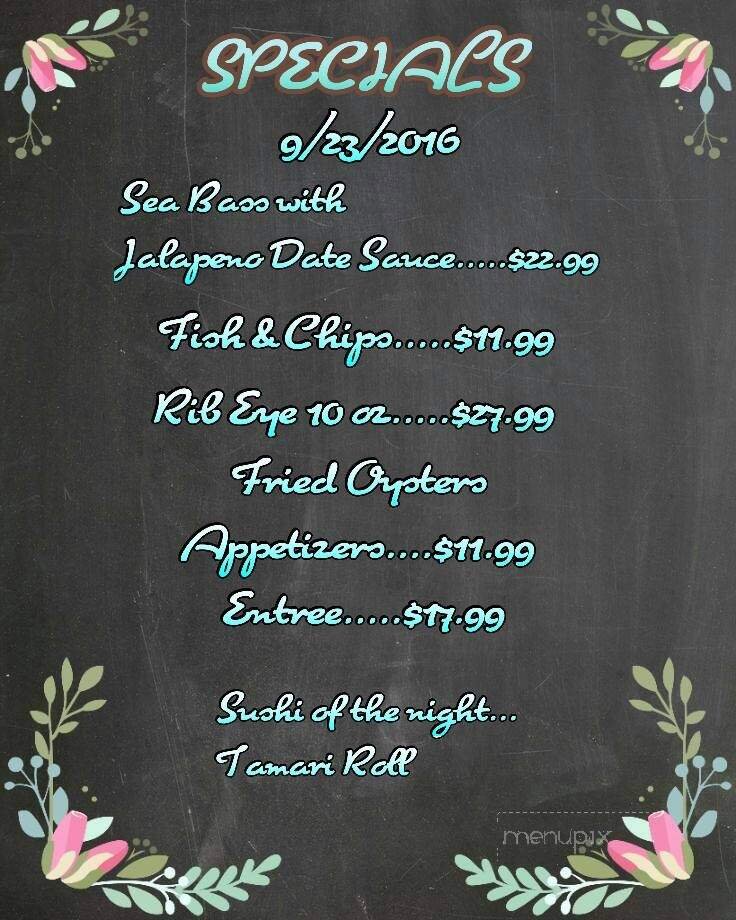 SPECIALS
9/23/2016
Sea Bass with
Jalapeno Date Sauce.....$22.99
Fish & Chips.....$11.99
Rib Eye 10 oz.....$27.99
Fried Oysters
Appetizers....$11.99
Entree.....$17.99
Sushi of the night...
Tamari Roll
menupix